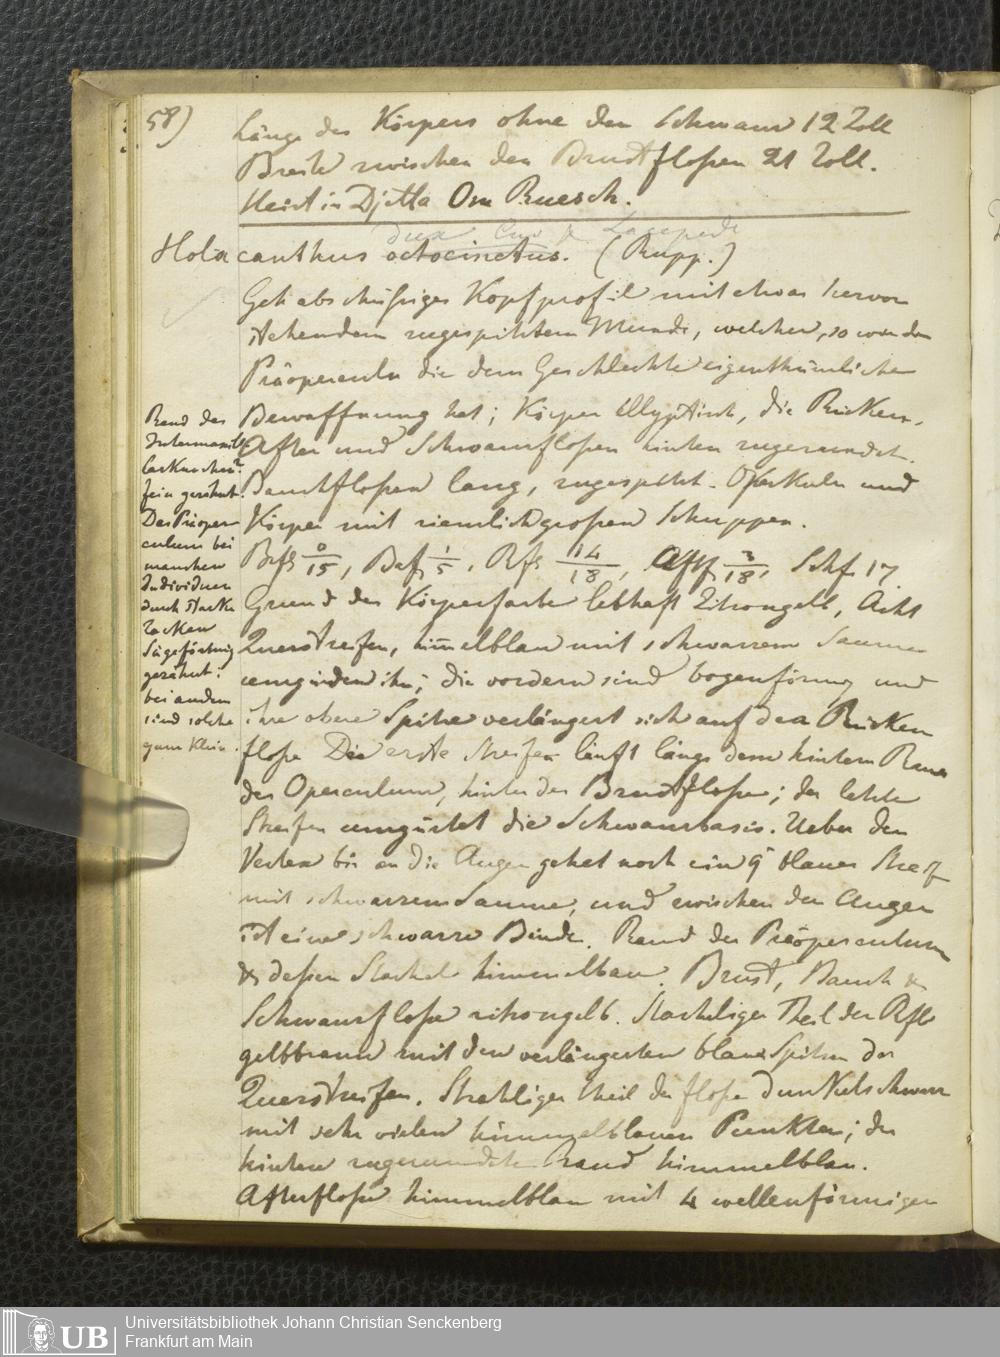 58)
Länge des Körpers ohne den Schwanz 12 Zoll
Breite zwischen den Brustflossen 21 Zoll.
Heist in Djetta Om Ruesch.
dux Cuv & Lacepede
Holacanthus octocinctus. (Rupp.)
Geh abschüssiges Kopfprofil mit etwas hervor
stehendem zugespitztem Munde, welcher, so wie der
Präoperculn die dem Geschlechte eigenthümlichen
Bewaffnung hat; Körper ellyptisch, die Rücken-
After und Schwanzflossen hinten zugerundet.
Bauchflossen lang, zugespitzt. Operkuln und
Körper mit ziemlich großen Schuppen.
Brfs 0/15, Baf 1/5, Rfs 14/18, Aftf 3/18, Schf 17.
Grund der Körperfarbe lebhaft Zitrongelb, Acht
Querstreifen, him̅elblau mit schwarzem Saumen
umgürden ihn; die vordern sind bogenförmig und
ihre obere Spitze verlängert sich auf den Rücken
flosse Die erste Streifen läuft längs dem hintern Rand
des Operculum, hinter der Brustflosse; der letzte
Streifen umgürtet die Schwanzbasis. Ueber den
Vertex bis an die Augen gehet noch ein 9r blauer Streif
mit schwarzem Saume, und zwischen den Augen
ist eine schwarze Binde. Rand des Präoperculum
& dessen Stachel himmelbau. Brust, Bauch &
Schwanzflosse zitrongelb. Stacheliger Theil der Rfls
gelbbraun mit den verlängerten blaue Spitzen der
Querstreifen. Strahliger theil der flosse dunkelschwarz
mit sehr vielen himmelblauen Punkten; der
hintere zugerundete Rand himmelblau.
Afterflosse himmelblau mit 4 wellenförmigen
Rand des
Intermaxil
larknochen
fein gezähnt.
Das Präoper
culum bei
manchen
Individuen
durch starke
Zacken
Sägeförmig
gezähnt;
bei andern
sind solche
ganz klein.
UB
Universitätsbibliothek Johann Christian Senckenberg
Frankfurt am Main